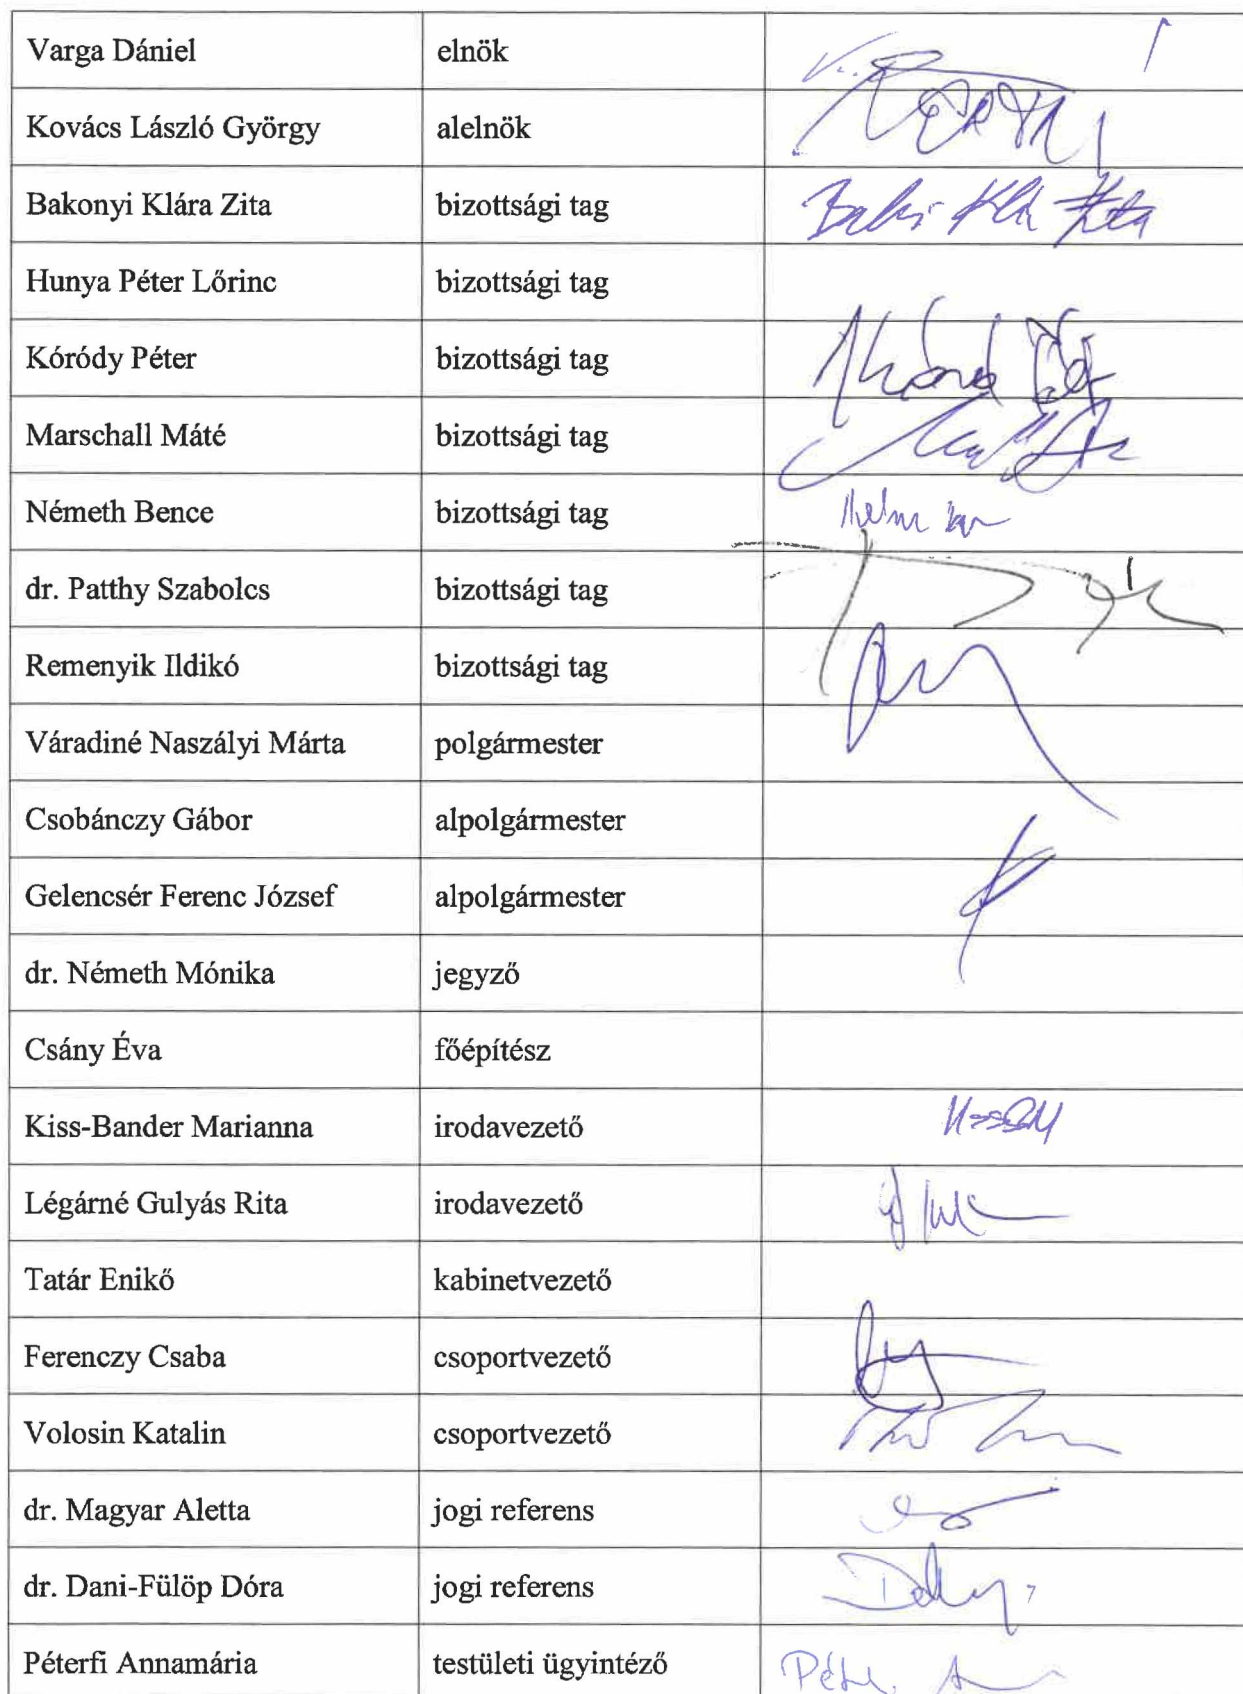 Varga Dániel elnök
Kovács László György alelnök
Bakonyi Klára Zita bizottsági tag
Hunya Péter Lőrinc bizottsági tag
Kóródy Péter bizottsági tag
Marschall Máté bizottsági tag
Németh Bence bizottsági tag
dr. Patthy Szabolcs bizottsági tag
Remenyik Ildikó bizottsági tag
Váradiné Naszályi Márta polgármester
Csobánczy Gábor alpolgármester
Gelencsér Ferenc József alpolgármester
dr. Németh Mónika jegyző
Csány Éva főépítész
Kiss-Bander Marianna irodavezető
Légárné Gulyás Rita irodavezető
Tatár Enikő kabinetvezető
Ferenczy Csaba csoportvezető
Volosin Katalin csoportvezető
dr. Magyar Aletta jogi referens
dr. Dani-Fülöp Dóra jogi referens
Péterfi Annamária testületi ügyintéző